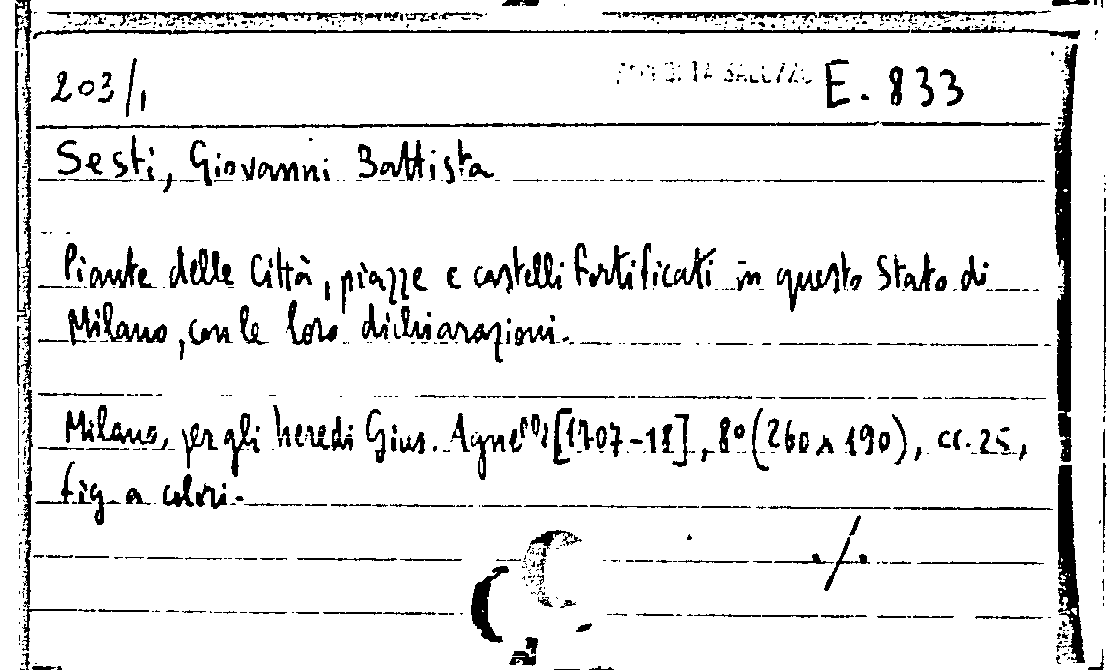 203/1 E. 833
Sesti, Giovanni Battista
Piante delle Città, piazze e castelli fortificati in questo Stato di
Milano, con le loro dichiarazioni.
Milano, per gli heredi Gius. Agnelli [1707-18], 8° (260 x 190), cc. 25,
fig. a colori.
./.